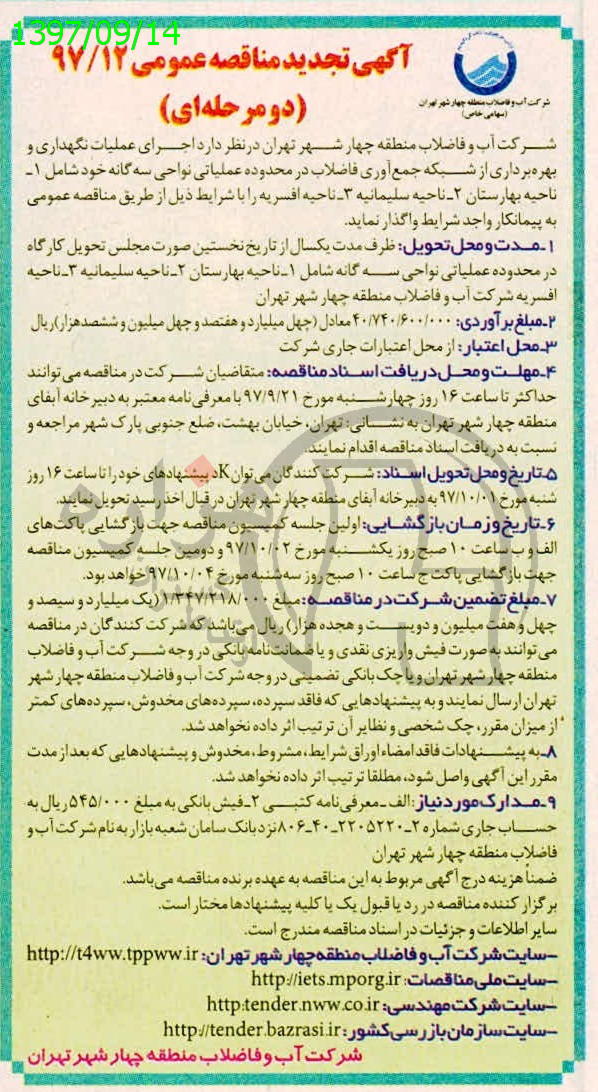 1397/09/14
آگهی تجدید مناقصه عمومی ۹۷/۱۲
(دو مرحله‌ای)
شرکت آب و فاضلاب منطقه چهار شهر تهران
(سهامی خاص)
شرکت آب و فاضلاب منطقه چهار شهر تهران درنظر دارد اجرای عملیات نگهداری و
بهره‌برداری از شبکه جمع‌آوری فاضلاب در محدوده عملیاتی نواحی سه گانه خود شامل ۱ـ
ناحیه بهارستان ۲ـ ناحیه سلیمانیه ۳ـ ناحیه افسریه را با شرایط ذیل از طریق مناقصه عمومی
به پیمانکار واجد شرایط واگذار نماید.
۱ـ مدت و محل تحویل: ظرف مدت یکسال از تاریخ نخستین صورت مجلس تحویل کارگاه
در محدوده عملیاتی نواحی سه گانه شامل ۱ـ ناحیه بهارستان ۲ـ ناحیه سلیمانیه ۳ـ ناحیه
افسریه شرکت آب و فاضلاب منطقه چهار شهر تهران
۲ـ مبلغ برآوردی: ۴۰/۷۴۰/۶۰۰/۰۰۰ معادل (چهل میلیارد و هفتصد و چهل میلیون و ششصدهزار) ریال
۳ـ محل اعتبار: از محل اعتبارات جاری شرکت
۴ـ مهلت و محل دریافت اسناد مناقصه: متقاضیان شرکت در مناقصه می‌توانند
حداکثر تا ساعت ۱۶ روز چهارشنبه مورخ ۹۷/۹/۲۱ با معرفی‌نامه معتبر به دبیرخانه آبفای
منطقه چهار شهر تهران به نشانی: تهران، خیابان بهشت، ضلع جنوبی پارک شهر مراجعه و
نسبت به دریافت اسناد مناقصه اقدام نمایند.
۵ـ تاریخ و محل تحویل اسناد: شرکت کنندگان می‌توانKد پیشنهادهای خود را تا ساعت ۱۶ روز
شنبه مورخ ۹۷/۱۰/۰۱ به دبیرخانه آبفای منطقه چهار شهر تهران در قبال اخذ رسید تحویل نمایند.
۶ـ تاریخ و زمان بازگشایی: اولین جلسه کمیسیون مناقصه جهت بازگشایی پاکت‌های
الف و ب ساعت ۱۰ صبح روز یکشنبه مورخ ۹۷/۱۰/۰۲ و دومین جلسه کمیسیون مناقصه
جهت بازگشایی پاکت ج ساعت ۱۰ صبح روز سه‌شنبه مورخ ۹۷/۱۰/۰۴ خواهد بود.
۷ـ مبلغ تضمین شرکت در مناقصه: مبلغ ۱/۳۴۷/۲۱۸/۰۰۰ (یک میلیارد و سیصد و
چهل و هفت میلیون و دویست و هجده هزار) ریال می‌باشد که شرکت کنندگان در مناقصه
می‌توانند به صورت فیش واریزی نقدی و یا ضمانت‌نامه بانکی در وجه شرکت آب و فاضلاب
منطقه چهار شهر تهران و یا چک بانکی تضمینی در وجه شرکت آب و فاضلاب منطقه چهار شهر
تهران ارسال نمایند و به پیشنهادهایی که فاقد سپرده، سپرده‌های مخدوش، سپرده‌های کمتر
از میزان مقرر، چک شخصی و نظایر آن ترتیب اثر داده نخواهد شد.
۸ـ به پیشنهادات فاقد امضاء اوراق شرایط، مشروط، مخدوش و پیشنهادهایی که بعد از مدت
مقرر این آگهی واصل شود، مطلقا ترتیب اثر داده نخواهد شد.
۹ـ مدارک مورد نیاز: الف ـ معرفی‌نامه کتبی ۲ـ فیش بانکی به مبلغ ۵۴۵/۰۰۰ ریال به
حساب جاری شماره ۲ـ۲۲۰۵۲۲۰ـ۴۰ـ۸۰۶ نزد بانک سامان شعبه بازار به نام شرکت آب و
فاضلاب منطقه چهار شهر تهران
ضمناً هزینه درج آگهی مربوط به این مناقصه به عهده برنده مناقصه می‌باشد.
برگزار کننده مناقصه در رد یا قبول یک یا کلیه پیشنهادها مختار است.
سایر اطلاعات و جزئیات در اسناد مناقصه مندرج است.
ـ سایت شرکت آب و فاضلاب منطقه چهار شهر تهران: http://t4ww.tppww.ir
ـ سایت ملی مناقصات: http://iets.mporg.ir
ـ سایت شرکت مهندسی: http:tender.nww.co.ir
ـ سایت سازمان بازرسی کشور: http://tender.bazrasi.ir
شرکت آب و فاضلاب منطقه چهار شهر تهران